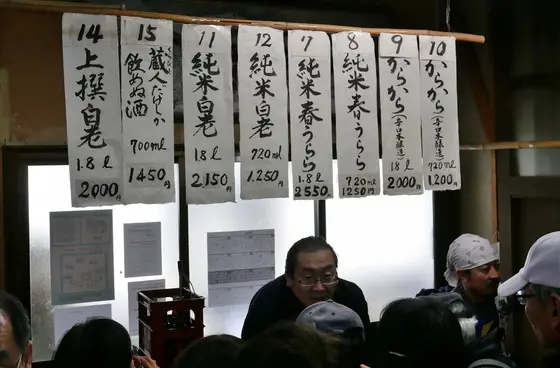 14
上撰白老
1.8L
2000円
15
蔵人だけしか
飲めぬ酒
700ml
1450
11
純米白老
1.8L
2,150円
12
純米白老
720ml
1,250円
7
純米春うらら
1.8L
2550円
8
純米春うらら
720ml
1250円
9
からから(辛口本醸造)
1.8L
2000円
10
からから(辛口本醸造)
720ml
1,200円